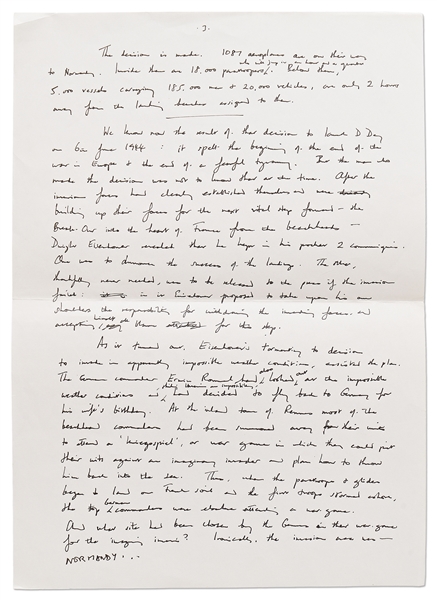 . 3 .
The decision is made. 1087 aeroplanes are on their way
to Normandy. Inside them are 18,000 paratroopers. Below them,
5,000 vessels carrying 185,000 men & 20,000 vehicles, are only 2 hours
away from the landing beaches assigned to them.
We know now the result of that decision to launch D Day
on 6th June 1944 : it spelt the beginning of the end of the
war in Europe & the end of a fearful tyranny. But the men who
made the decision was not to know that at the time. After the
invasion forces had clearly established themselves and were
building up their forces for the next vital step forward - the
Break-Out into the heart of France from the beachheads -
Dwight Eisenhower revealed that he kept in his pocket 2 communiqués.
One was to announce the success of the landings. The other,
thankfully never needed, was to be released to the press if the invasion
failed : in it Eisenhower proposed to take upon his own
shoulders the responsibility for withdrawing the invading forces and
accepting himself the for this step.
As it turned out, Eisenhower's decision
to invade in apparently impossible weather conditions, assisted the plan.
The German commander, Erwin Rommel had also looked out at the impossible
weather conditions and had decided to fly back to Germany for
his wife's birthday. At the inland town of Rennes most of the
beachhead commanders had been summoned away from their units
to attend a 'kriegsspiel', or war game in which they could pit
their wits against an imaginary invader and plan how to throw
him back into the sea. Thus, when the paratroops & gliders
began to land on French soil and the first troops stormed ashore,
the top German commanders were elsewhere attending a war game.
And what site had been chosen by the Germans in their war game
for the imaginary invasion? Ironically, the invasion area was -
NORMANDY . . .